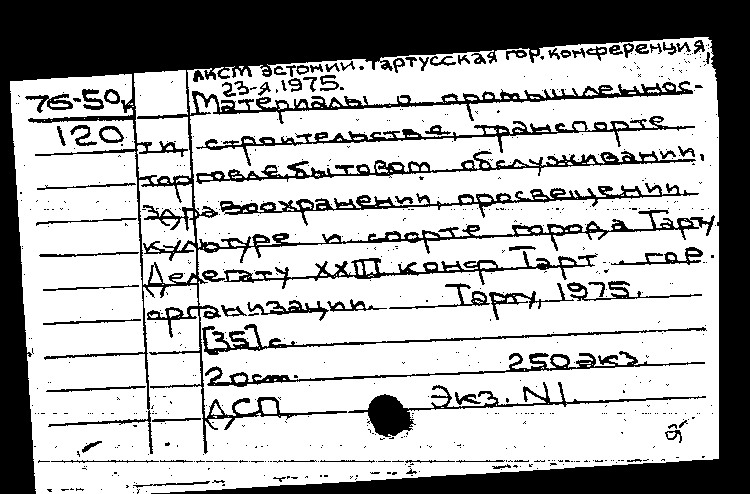 ЛКСМ Эстонии. Тартусская гор. конференция,
23-я. 1975.
76-50к Материалы о промышленнос-
120 ти, строительстве, транспорте
торговле, бытовом обслуживании,
здравоохранении, просвещении,
культуре и спорте города Тарту.
Делегату XXIII конф Тарт. гор.
организации. Тарту, 1975.
[35] с.
20 cm. 250 экз.
ДСП Экз. N1.